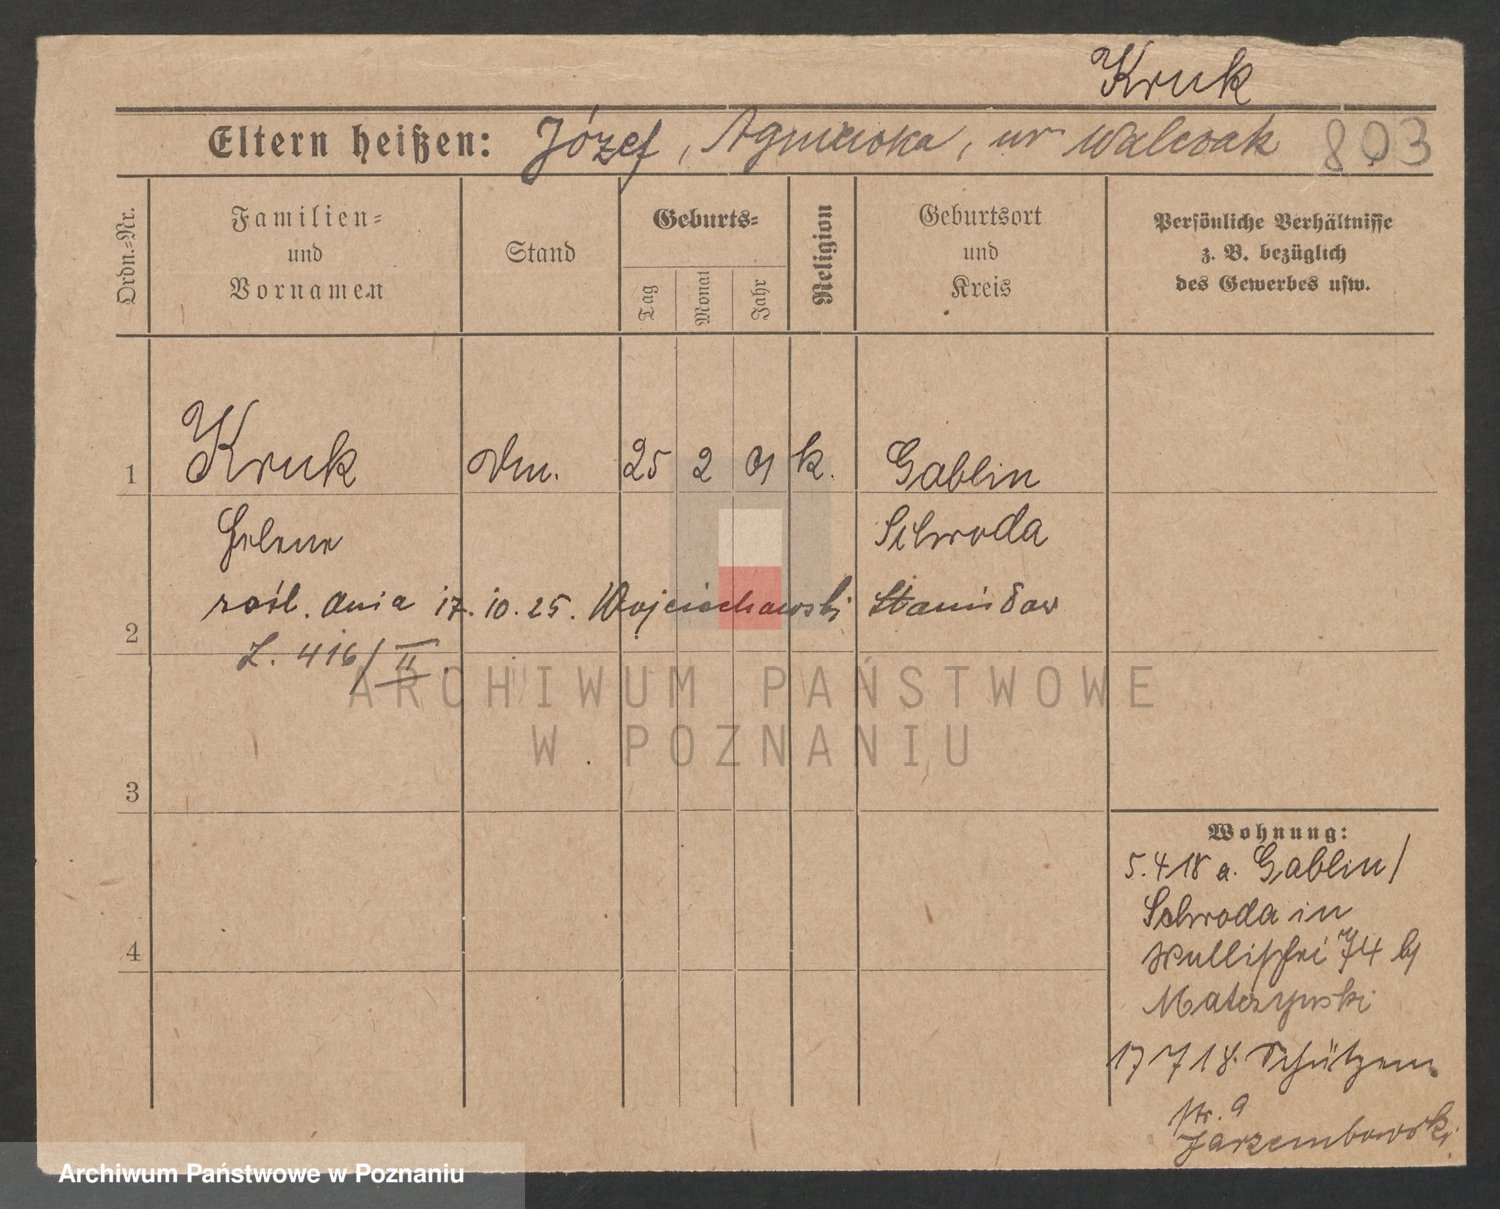 Kruk
Eltern heißen: Józef, Agnieska, ur Walczak 803
Ordn.=Nr.
Familien=
und
Vornamen
Stand
Geburts=
Tag
Monat
Jahr
Religion
Geburtsort
und
Kreis
Persönliche Verhältnisse
z. B. bezüglich
des Gewerbes usw.
1 Kruk 25 2 01 k. Gablin
Helene Schroda
2 zaśl. dnia 17.10.25. Wojciechowski Stanisław
L. 416/II
3
4
Wohnung:
5.4 18 a. Gablin/
Schroda in
74 b/
Matczynski
17 7 18. Schützen
str. 9
Jarzembowski.
ARCHIWUM PAŃSTWOWE
W POZNANIU
Archiwum Państwowe w Poznaniu